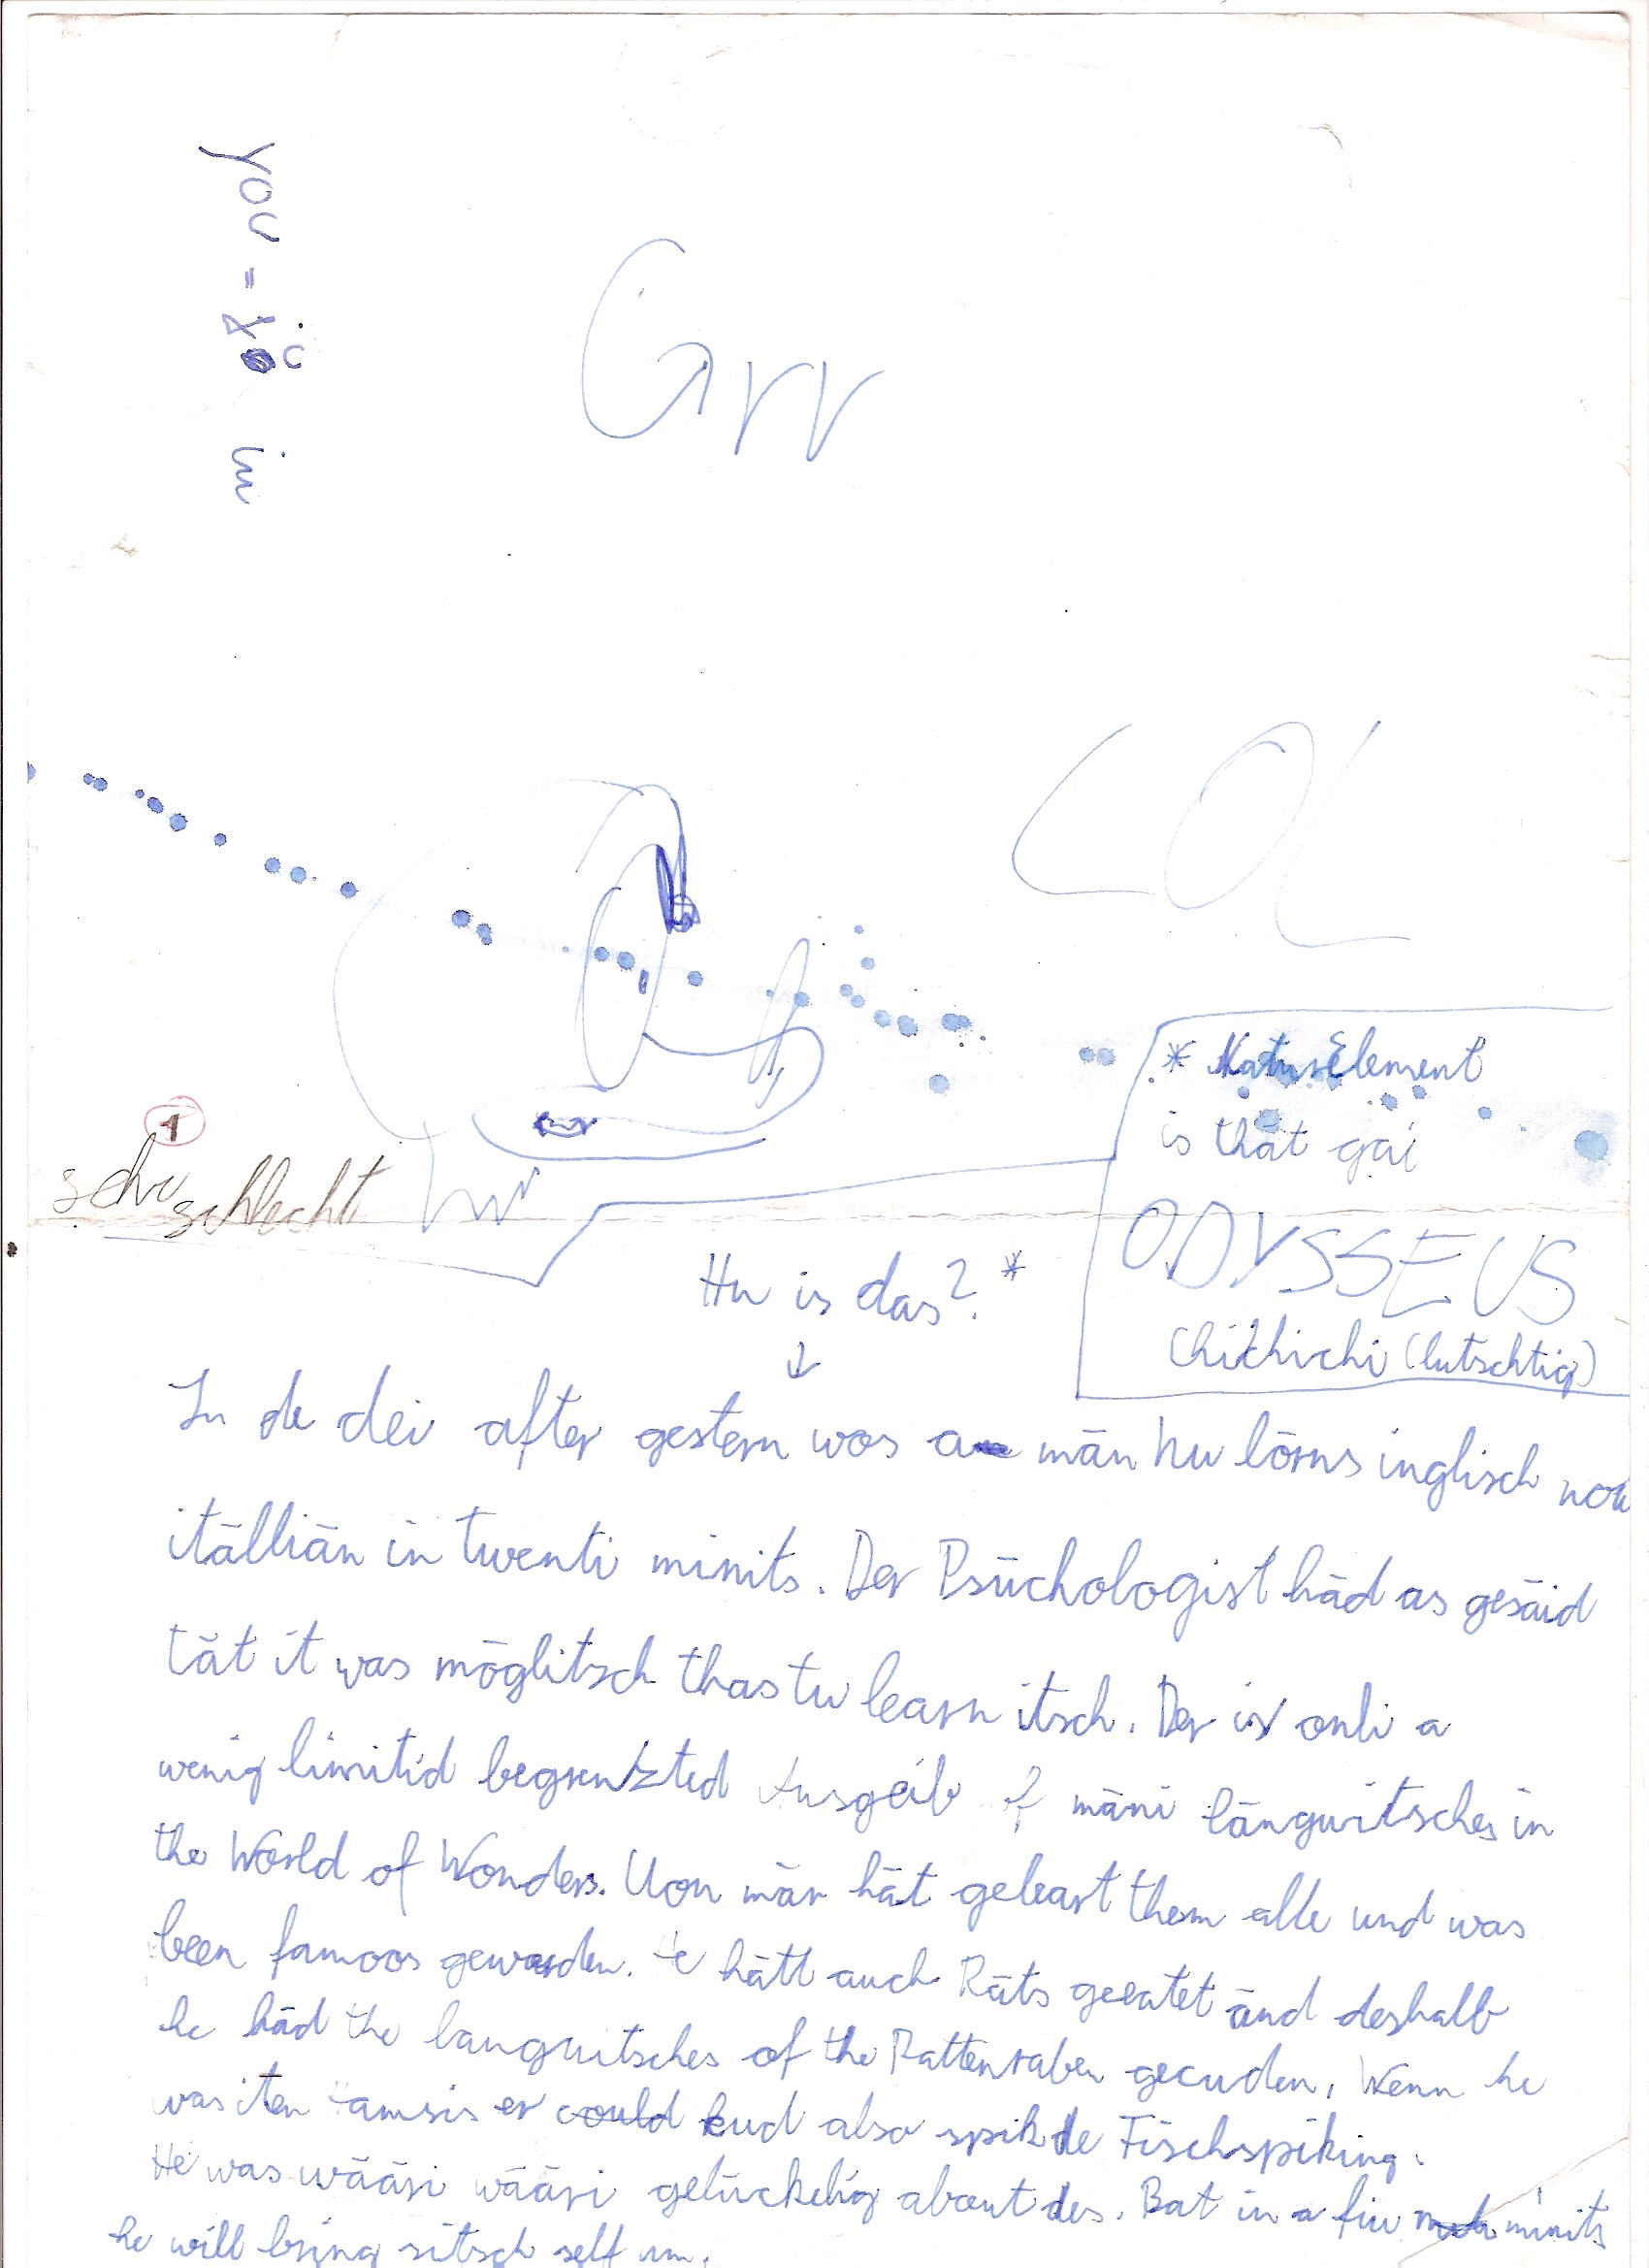 you = jü in
Grr
LOL
* Naturelement
is that gai
ODYSSEUS
Chichichi (lutschtig)
1
sehr schlecht
Hu is das? *
↓
In de dei after gestern wos a män hu lörns inglisch
itälliän in twenti minits. Der Psüchologist häd as gesäid
tät it was möglitsch thas tu learn itsch. Der is onli a
wenig limitid begrenzted Ausgeib of mäni länguitsches in
the World of Wonders. Uon män hät geleart them alle und was
been famoos gewarden. He hätt auch Räts geeatet änd deshalb
he häd the languitsches of the Rattenraben gecuden. Wenn he
was iten er could kud also spik de Fischspiking.
He was wääri wääri gelückelig about des. Bat in a fiu minits
he will bring sitsch self um.